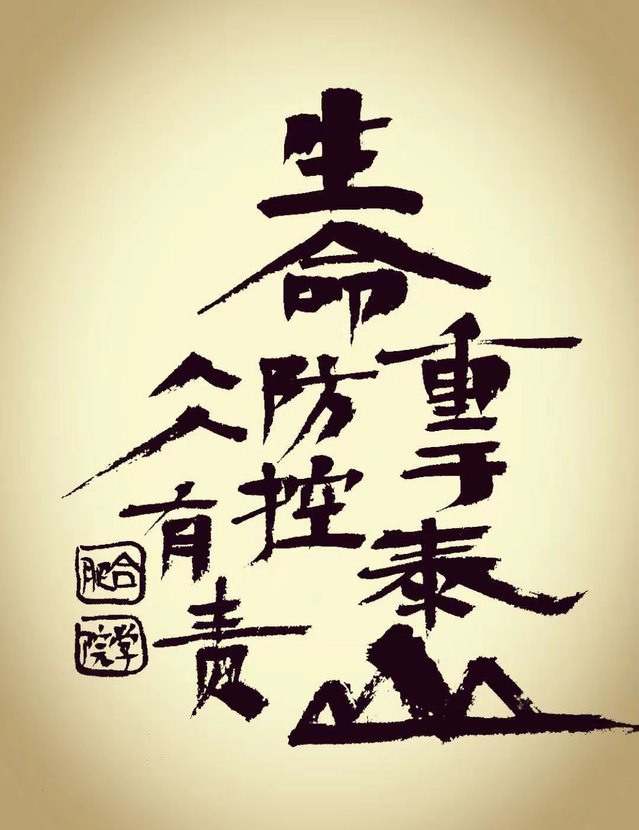 生命
重于泰山
防控
人人有责
合肥
学院